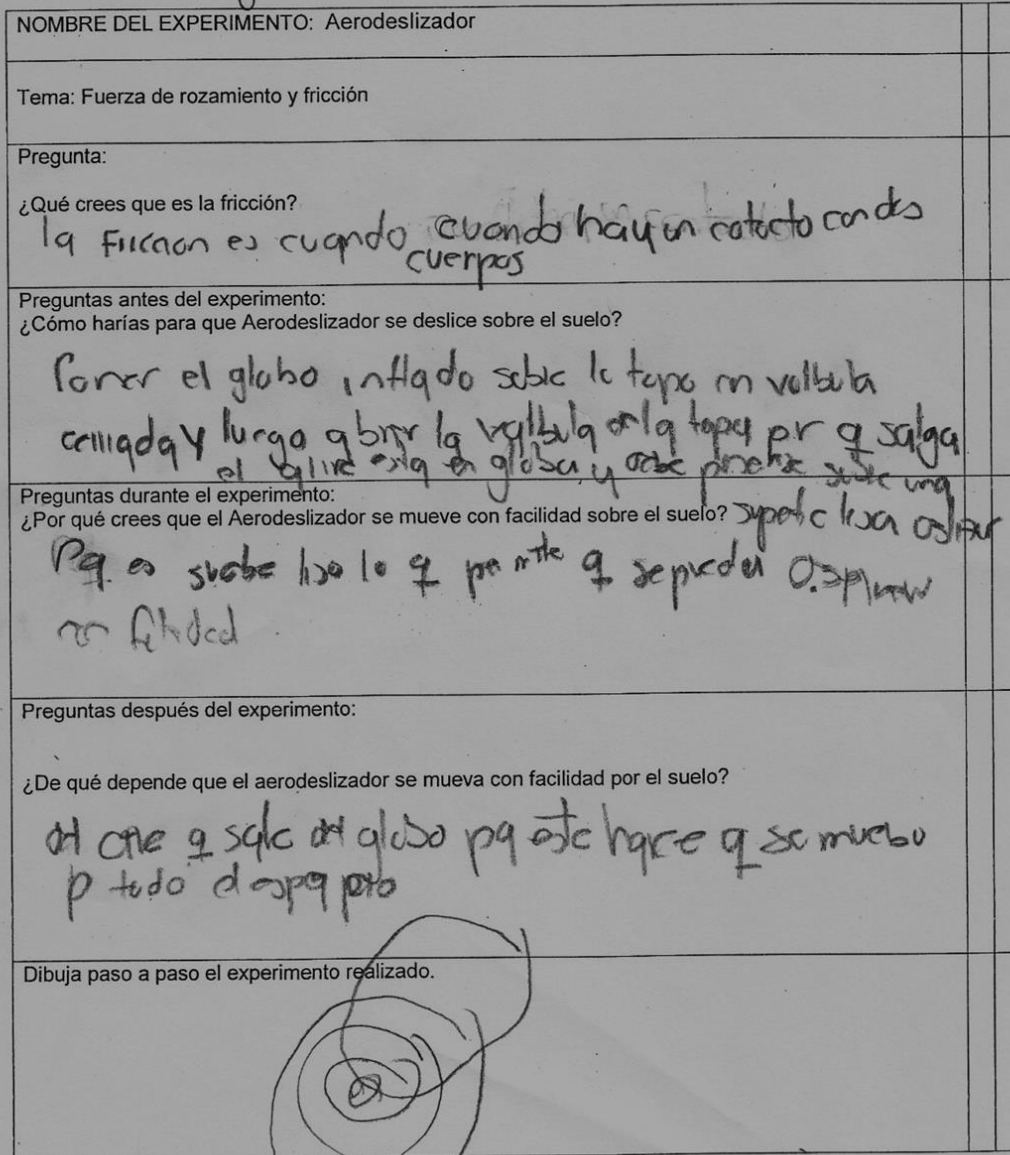 NOMBRE DEL EXPERIMENTO: Aerodeslizador
Tema: Fuerza de rozamiento y fricción
Pregunta:
¿Qué crees que es la fricción?
la Friccion es cuando cuando hay un catacto con dos
cuerpos
Preguntas antes del experimento:
¿Cómo harías para que Aerodeslizador se deslice sobre el suelo?
Poner el globo inflado sobre la tapa con valbula
cerrada y luego abrir la valbula de la tapa pr q salga
el
Preguntas durante el experimento:
¿Por qué crees que el Aerodeslizador se mueve con facilidad sobre el suelo?
Pq es liso lo q permite q se pueda
Preguntas después del experimento:
¿De qué depende que el aerodeslizador se mueva con facilidad por el suelo?
del aire q sale del globo pq este hace q se mueba
p todo el
Dibuja paso a paso el experimento realizado.